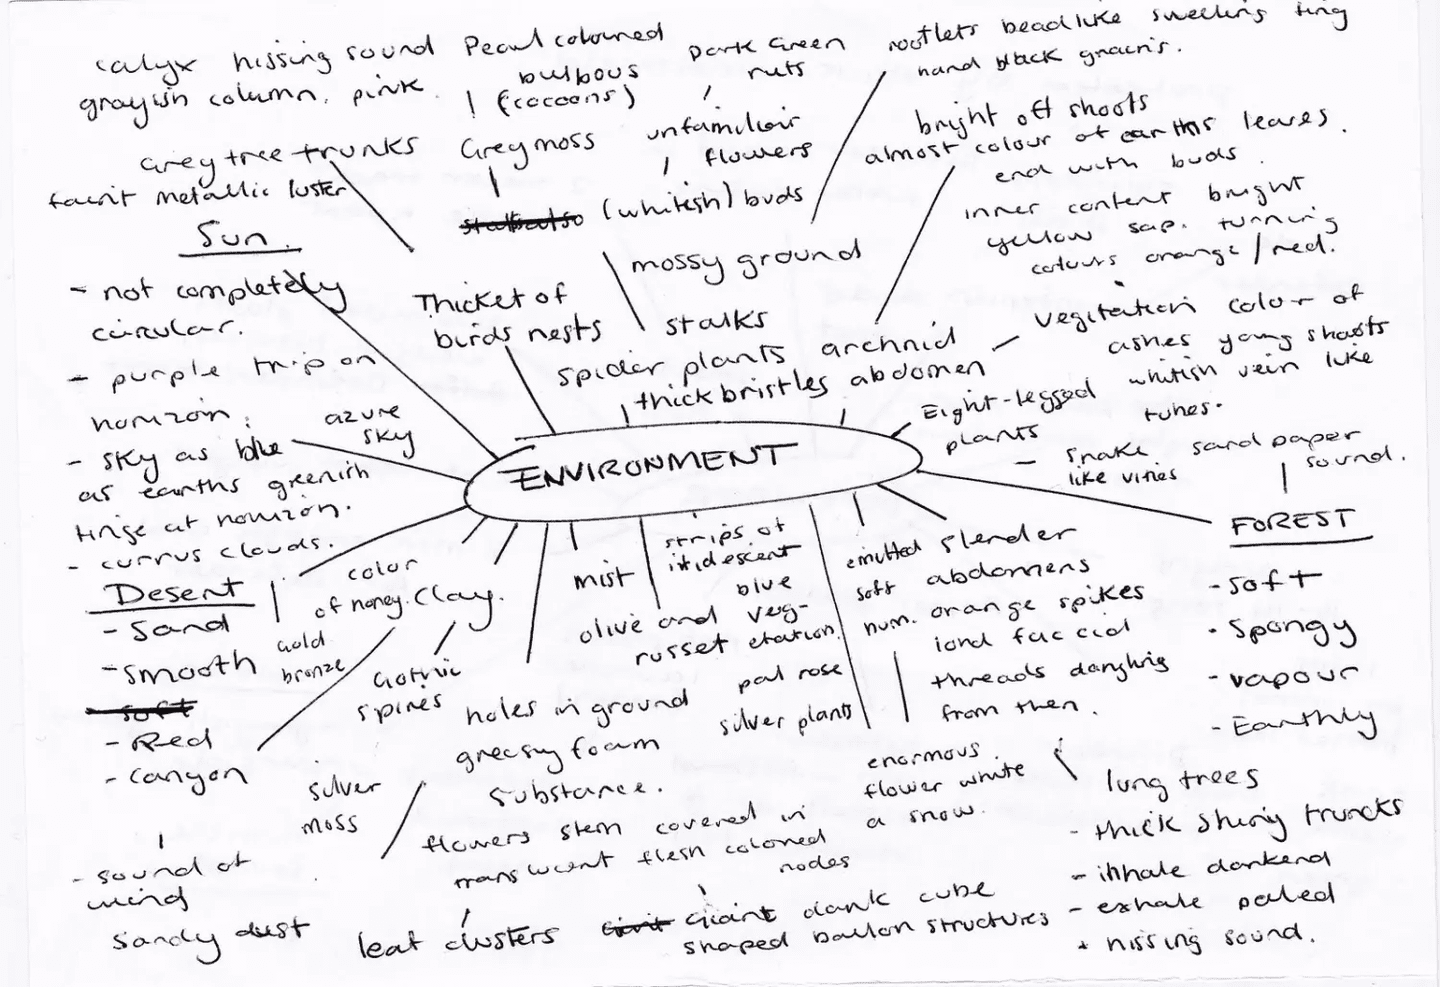 calyx hissing sound
grayish column, pink.
Pearl coloured
bulbous
(cocoons)
Dark Green
nuts
rootlets beadlike swelling tiny
hand black grains.
Grey tree trunks
faint metallic luster
Grey moss
unfamiliar
flowers
(whitish) buds
bright off shoots
almost colour of earths leaves.
end with buds.
inner content bright
yellow sap. turning
colours orange/red.
mossy ground
Sun.
- not completely
circular.
- purple trip on
horizon.
- sky as blue
as earths greenish
tinge at horizon.
- currus clouds.
azure
sky
Thicket of
birds nests
stalks
spider plants
thick bristles
archnid
abdomen
Vegitation color of
ashes young shoots
whitish vein like
tubes.
Eight-legged
plants
- snake
like vities
sand paper
sound.
ENVIRONMENT
FOREST
- soft
- Spongy
- vapour
- Earthly
Desert
- Sand
- smooth
soft
- Red
- canyon
- sound of
wind
sandy dust
color
of honey.
gold
bronze
Clay.
Gothic
spines
silver
moss
mist
holes in ground
greasy foam
substance.
strips of
iridescent
blue
veg-
etation.
olive and
russet
pal rose
silver plants
emitted
soft
hum.
slender
abdomens
orange spikes
and faccid
threads dangling
from then.
enormous
flower white
a snow.
flowers stem covered in
translucent flesh colored
nodes
leaf clusters
Giant dank cube
shaped ballon structures
lung trees
- thick shiny truncks
- inhale darkend
- exhale paled
* hissing sound.